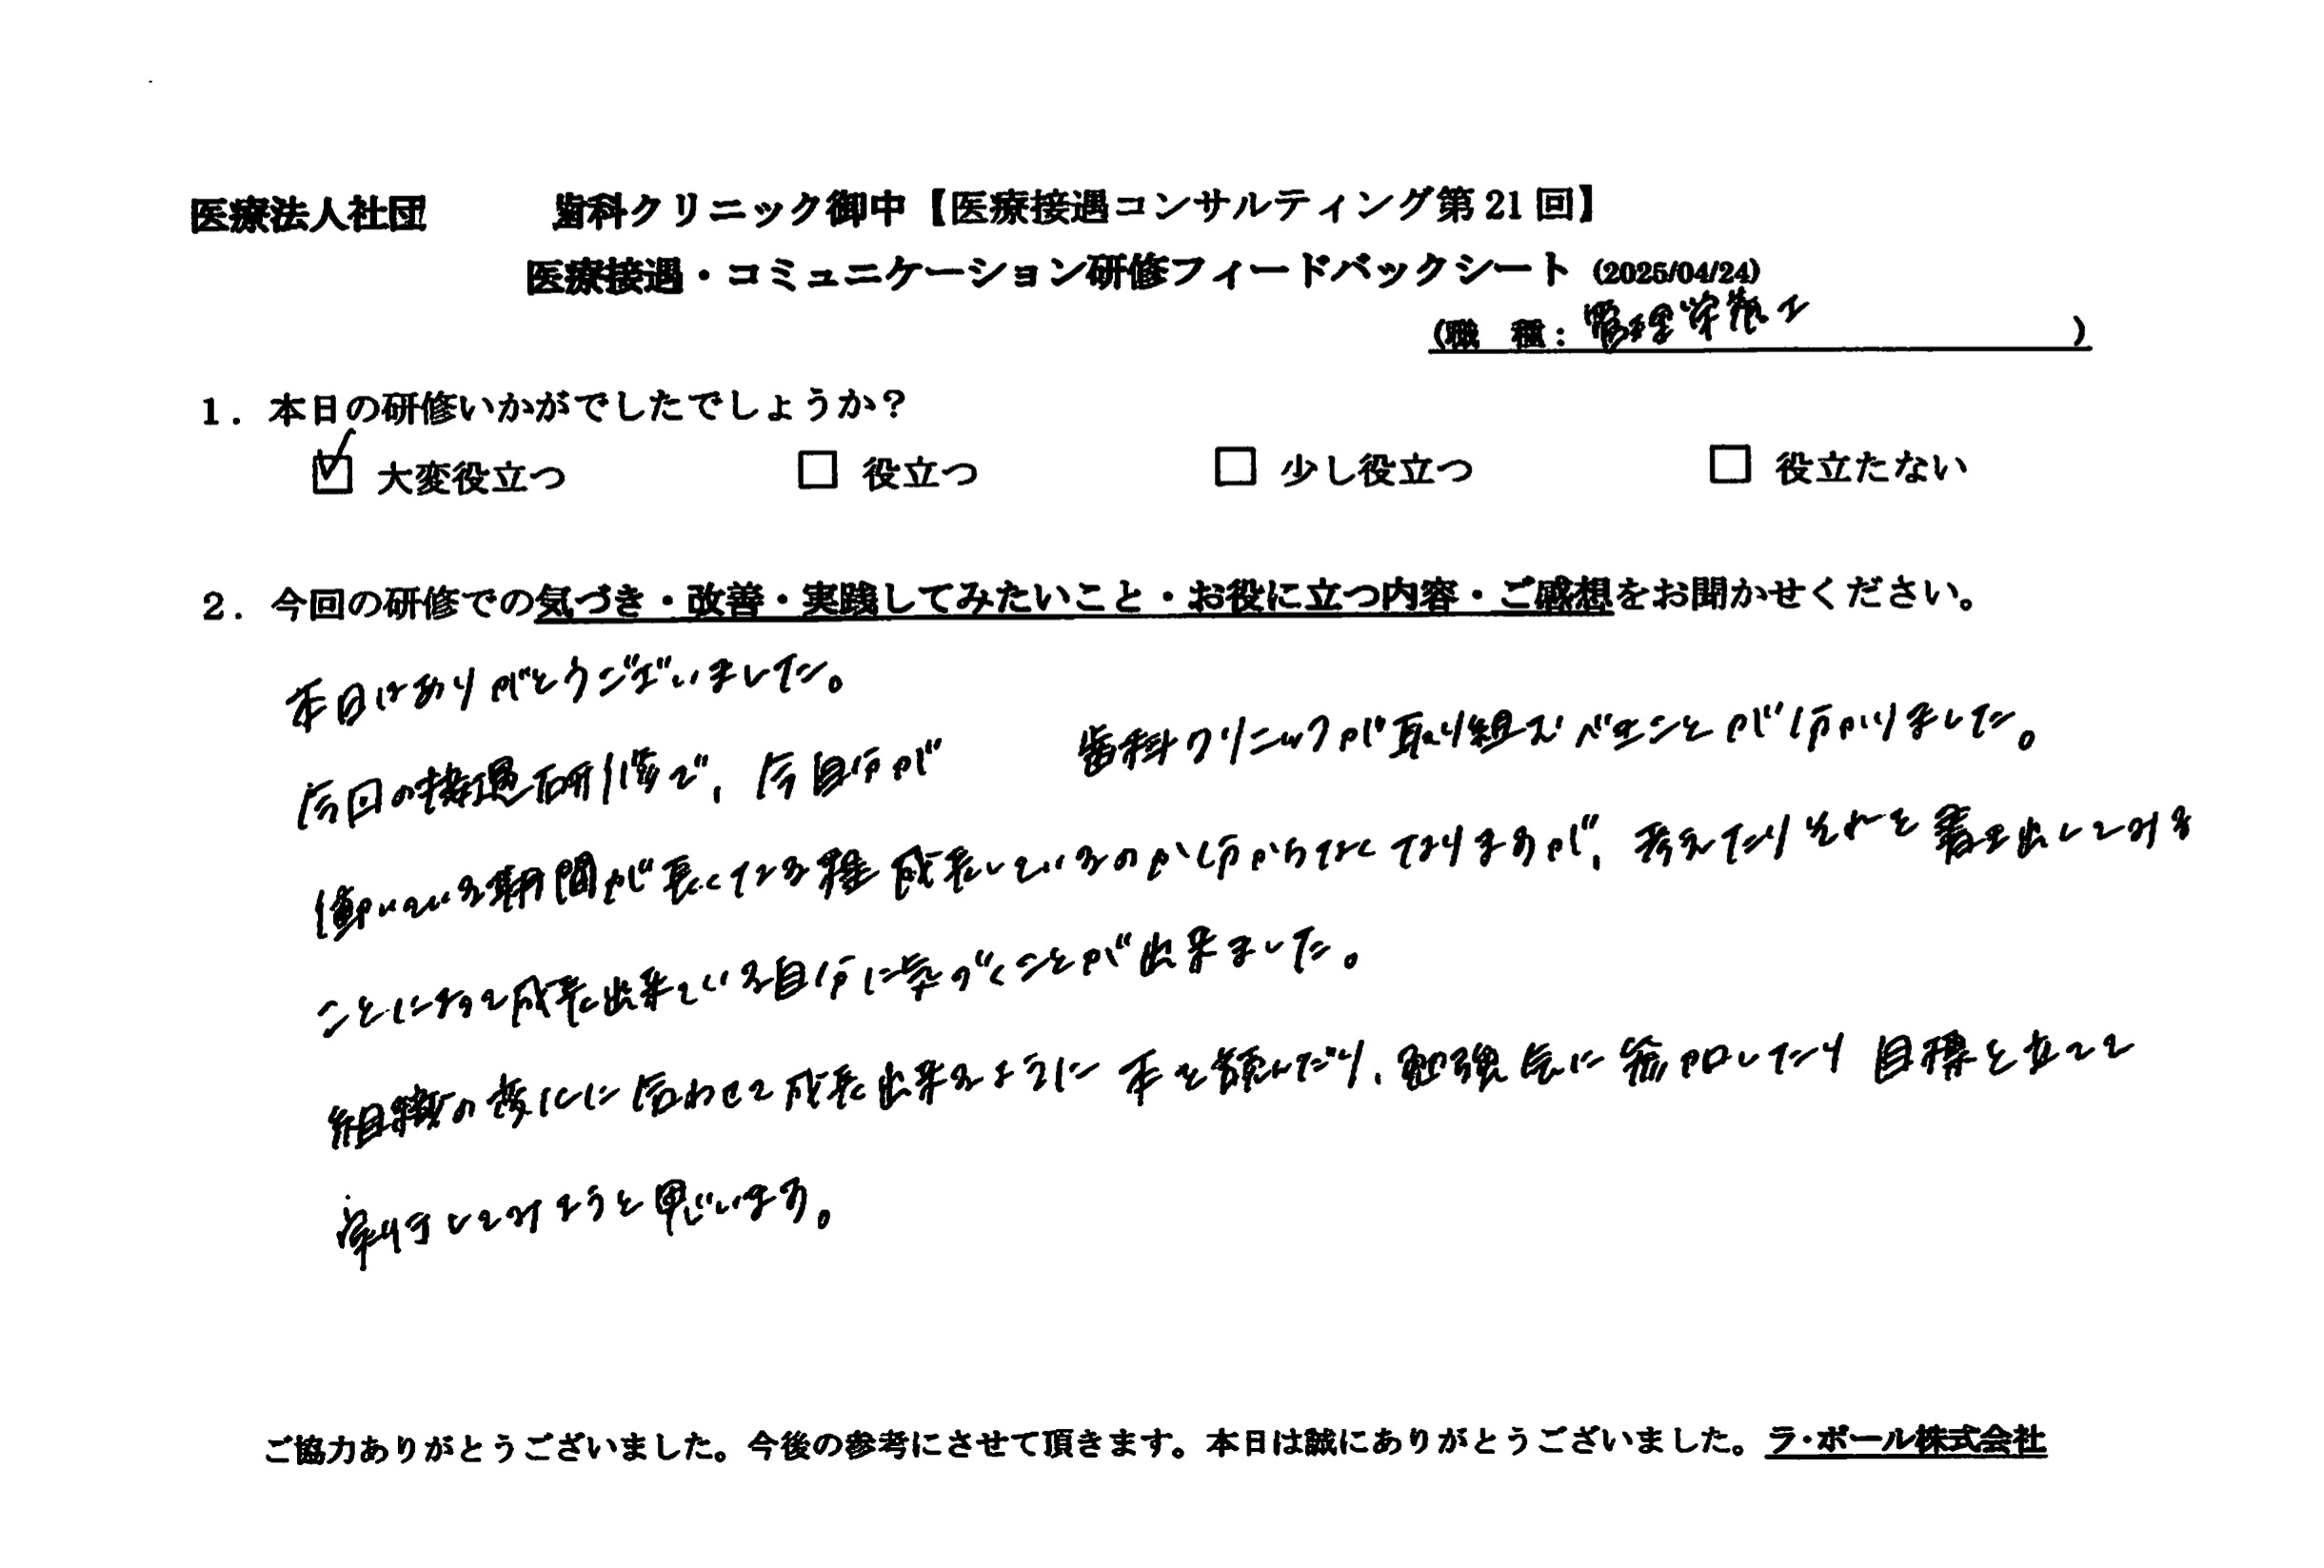 医療法人社団 歯科クリニック御中【医療接遇コンサルティング第21回】
医療接遇・コミュニケーション研修フィードバックシート (2025/04/24)
(職 種: 管理栄養士 )
1. 本日の研修いかがでしたでしょうか?
☑ 大変役立つ □ 役立つ □ 少し役立つ □ 役立たない
2. 今回の研修での気づき・改善・実践してみたいこと・お役に立つ内容・ご感想をお聞かせください。
本日はありがとうございました。
今回の接遇研修で、今自分が 歯科クリニックが取り組むべきことが分かりました。
働いている期間が長くなる程成長しているのか分からなくなりますが、考えたりそれを書き出してみる
ことによって成長出来ている自分に気づくことが出来ました。
組織の変化に合わせて成長出来るように本を読んだり、勉強会に参加したり目標を立てて
実行してみようと思います。
ご協力ありがとうございました。今後の参考にさせて頂きます。本日は誠にありがとうございました。ラ・ポール株式会社